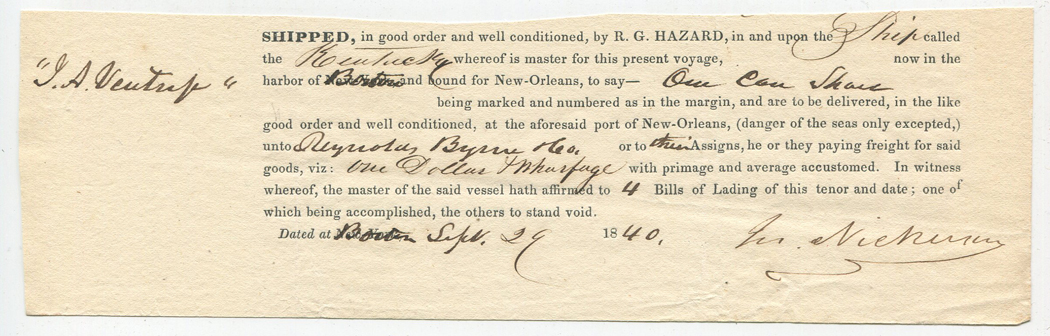 SHIPPED, in good order and well conditioned, by R. G. HAZARD, in and upon the Ship called
the Kentucky whereof is master for this present voyage, now in the
"J. A. Ventrap" harbor of Boston and bound for New-Orleans, to say— One Case Shoes
being marked and numbered as in the margin, and are to be delivered, in the like
good order and well conditioned, at the aforesaid port of New-Orleans, (danger of the seas only excepted,)
unto Reynolds Byrne & Co. or to their Assigns, he or they paying freight for said
goods, viz: One Dollar & Wharfage with primage and average accustomed. In witness
whereof, the master of the said vessel hath affirmed to 4 Bills of Lading of this tenor and date; one of
which being accomplished, the others to stand void.
Dated at Boston Sept. 29 1840. Nickerson